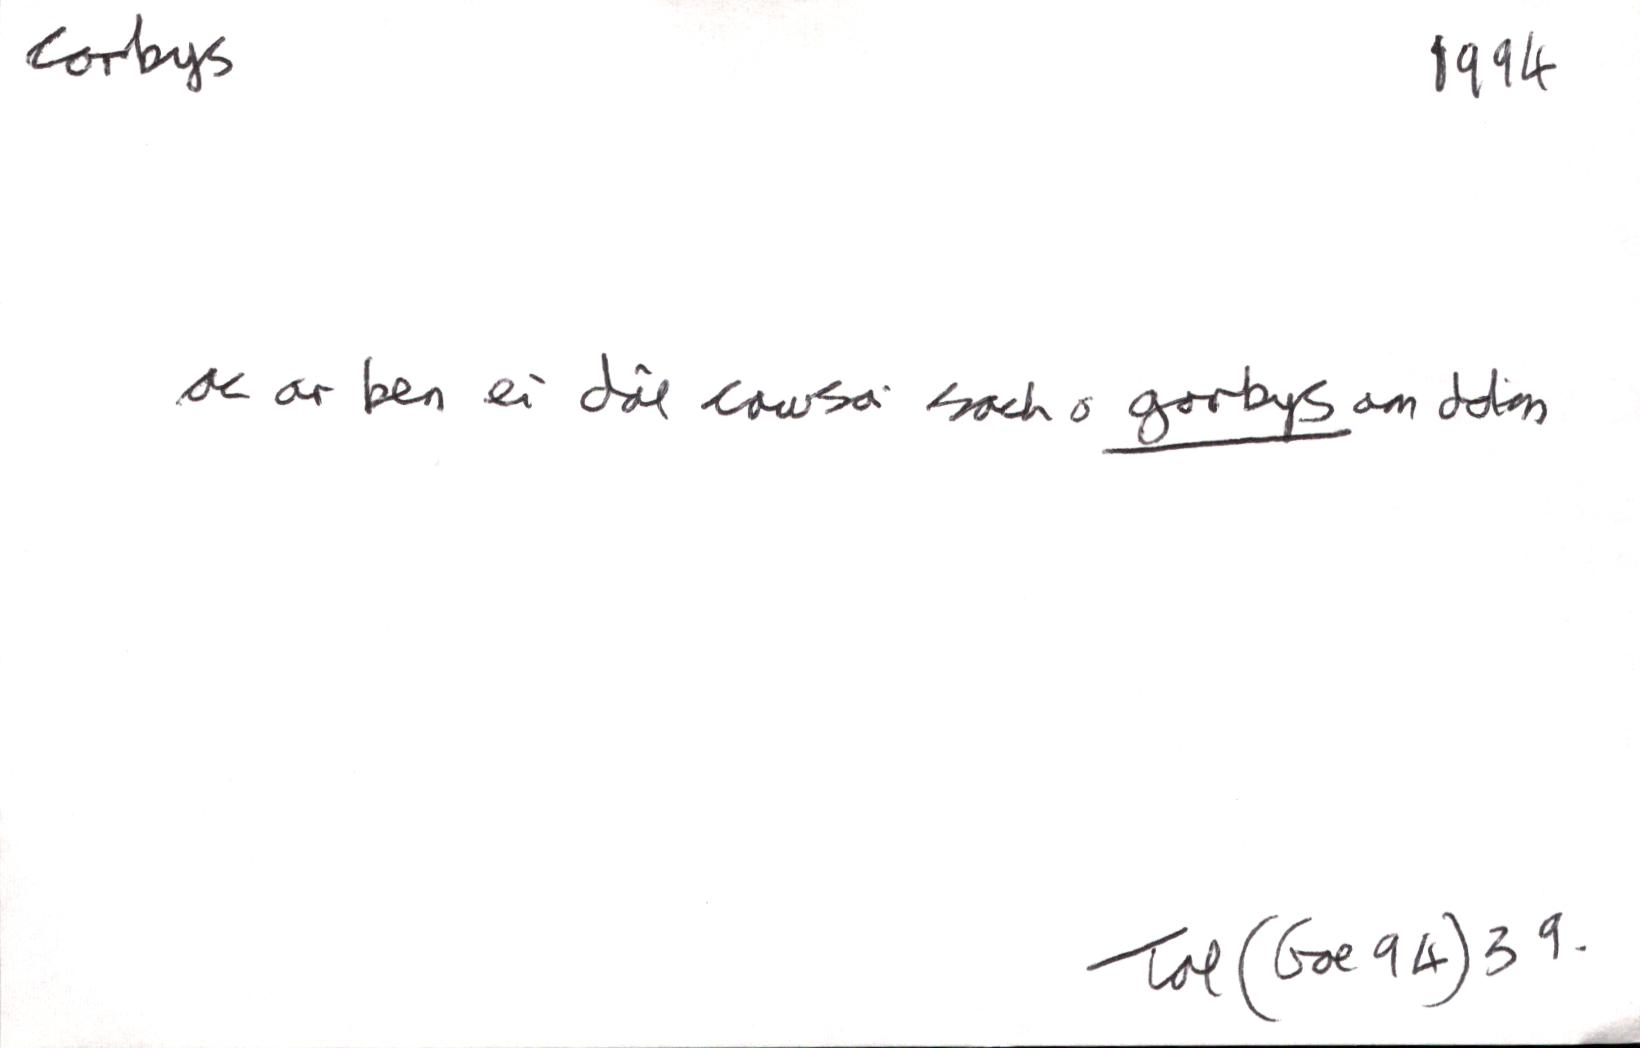 corbys 1994
ac ar ben ei dâl cawsai sach o gorbys am ddim
Tal (Gae 94) 39.